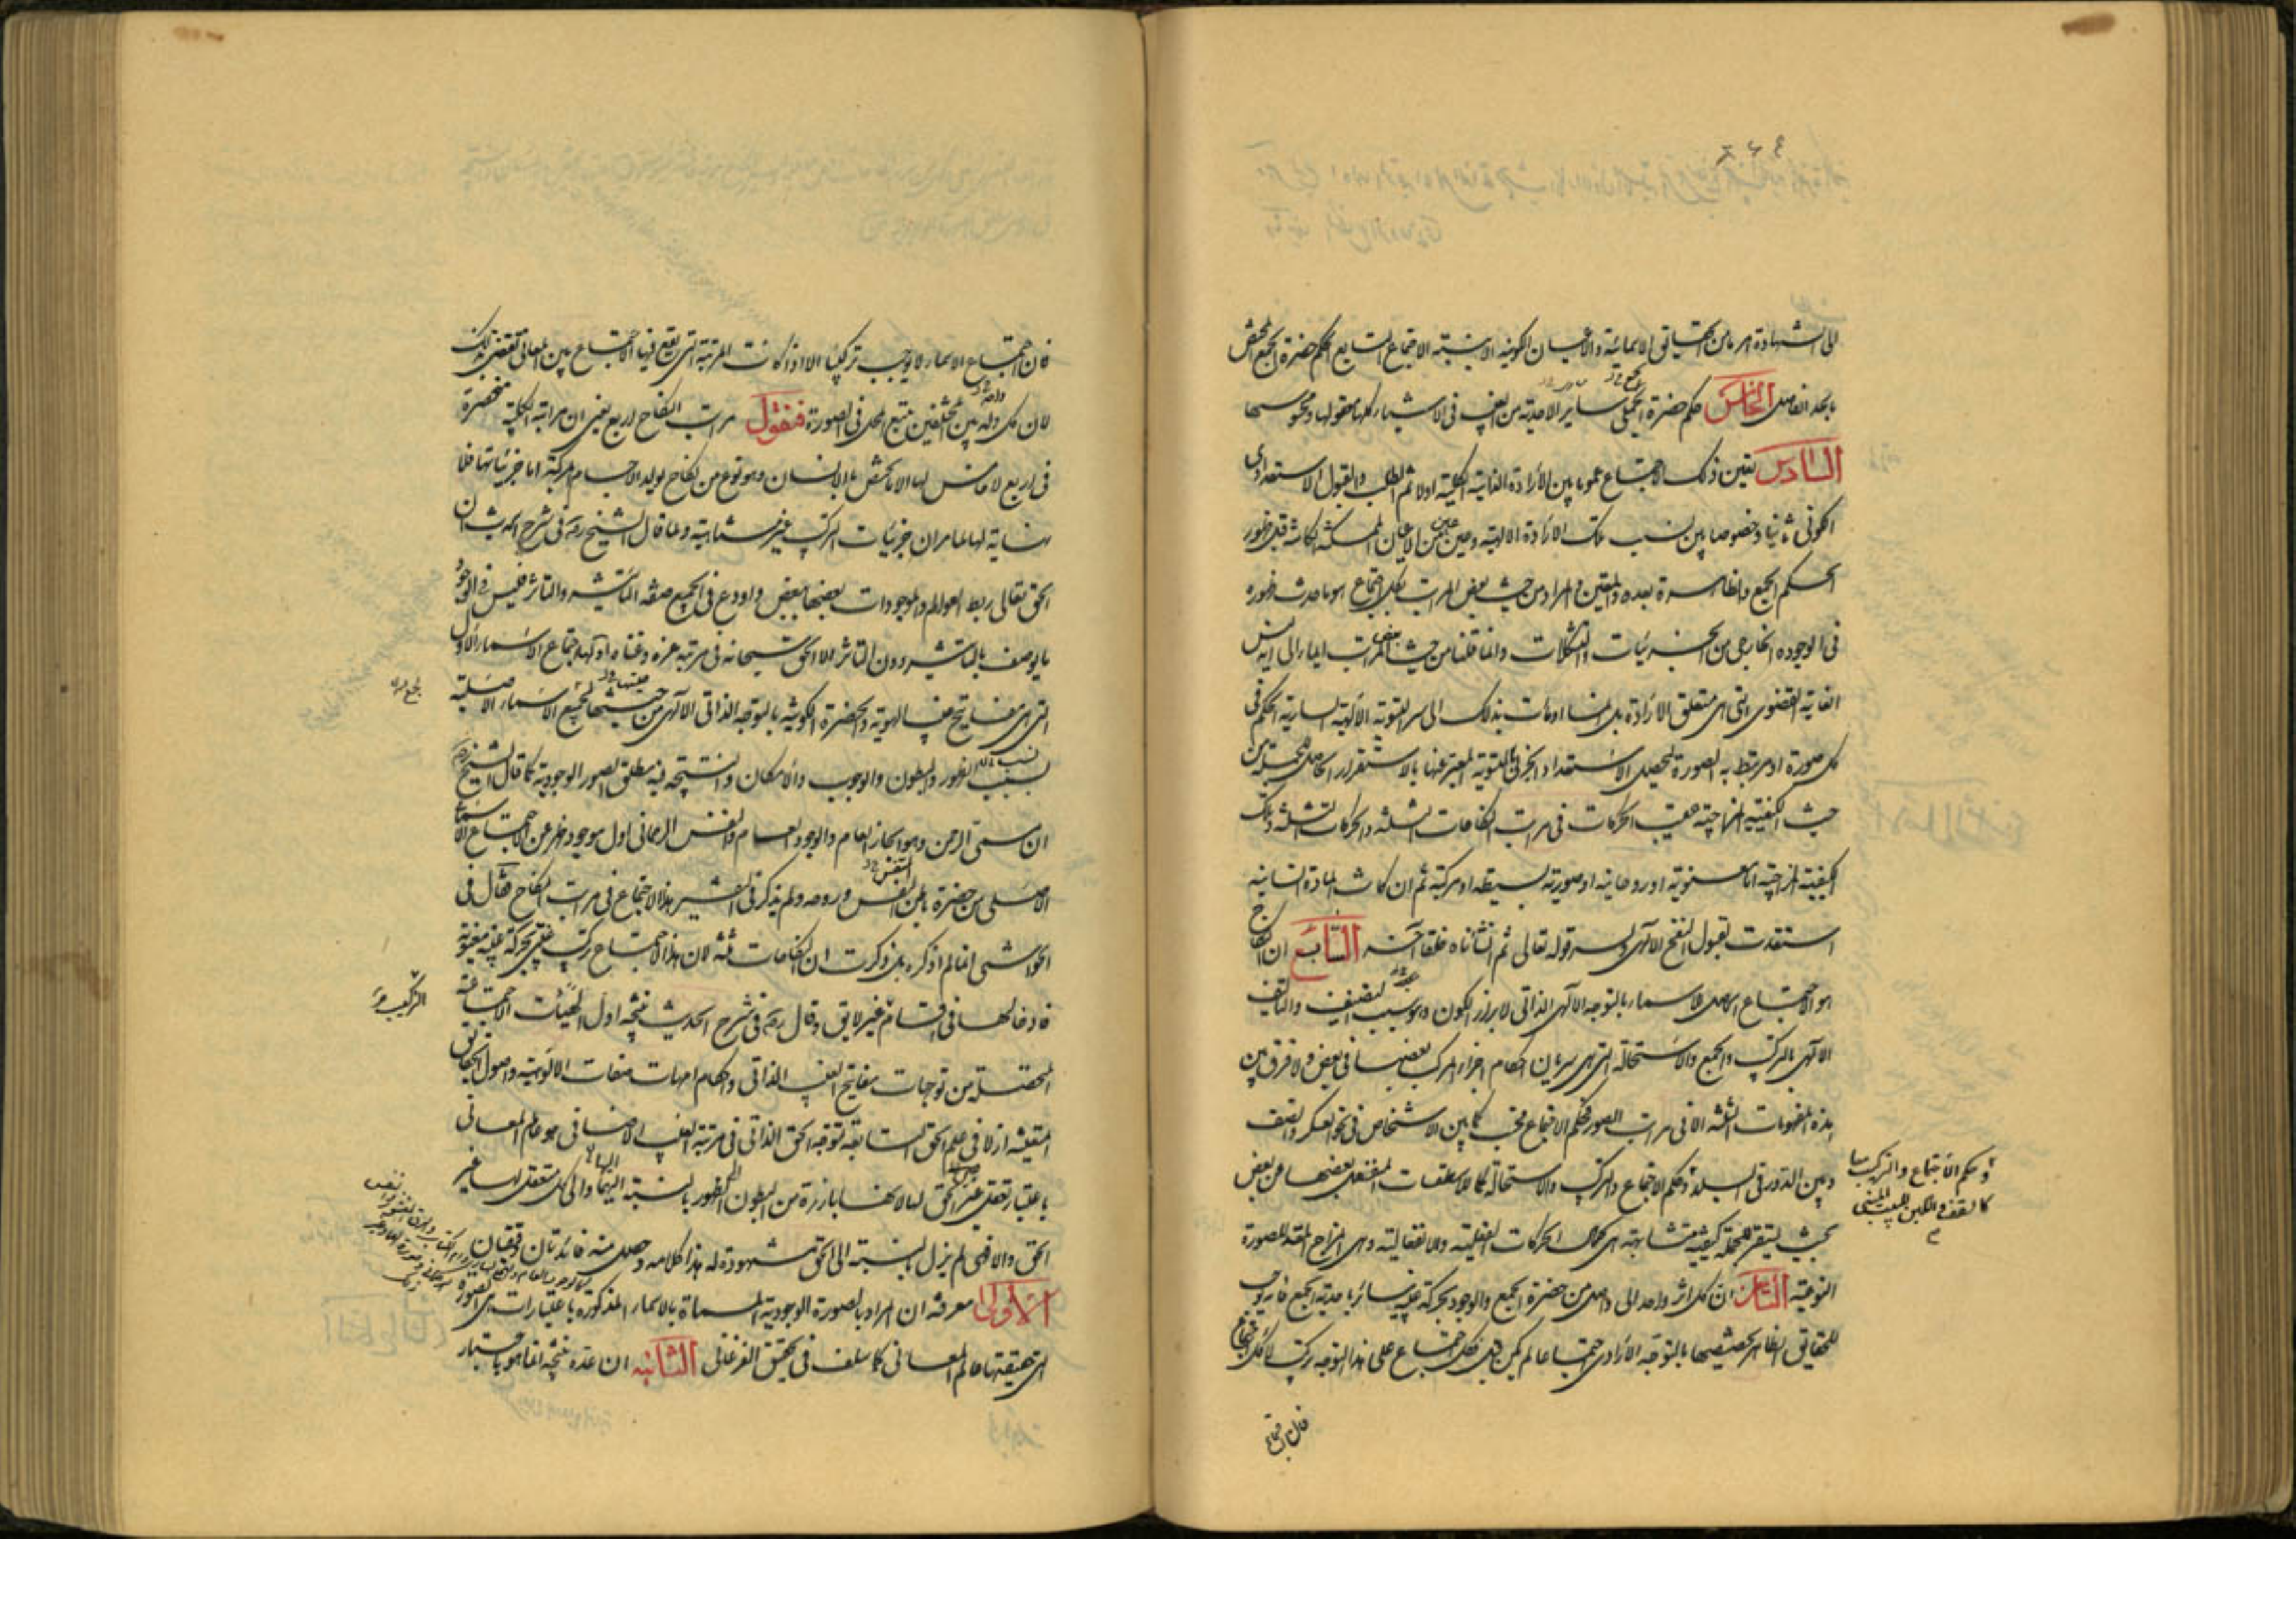 الى الشهادة امر ما من الحقايق الاسمائية والاعيان الكونية او بنسبة الاجتماع التابع لحكم حضرة الجمع المختص
بالحد الفاصل الخامس حكم حضرة الجمعى سایر الاحدية من الغيب فى الاشياء كلها معقولها ومحسوسها
السادس تعين ذلك الاجتماع عموما بين الارادة الذاتية الكلية اولا ثم الطلب والقبول الاستعدادى
الكونى ثانيا وخصوصا بين نسب تلك الارادة الالهية وعين عين من الاعيان الممكنة الكائنة قبل ظهور
حكم الجمع والظاهرة بعده والمتعين والمراد من حيث بعض المراتب بكل اجتماع هو ما حدث ظهوره
فى الوجوده الخارجى من الجزئيات والتشكلات وانما قلنا من حيث بعض المراتب ايماء الى انه ليس
الغاية القصوى التى هى متعلق الارادة بل انما اومات بذلك الى سر التسوية الالهية السارية الحكم فى
كل صورة او مرتبط به الصورة لتحصيل الاستعداد الجزئى بالتسوية المعبر عنها بالاستقرار الحاصل للجملة من
حيث الكيفية المزاجية عقيب الحركات فى مراتب النكاحات الثلثة والحركات الثلثة وتلك
الكيفية المزاجية اما معنوية او روحانية او صورية بسيطة او مركبة ثم ان كانت المادة انسانية
استعدت لقبول النفخ الالهى وسر قوله تعالى ثم انشاناه خلقا آخر السابع ان النكاح
هو الاجتماع الاصلى للاسماء بالتوجه الالهى الذاتى لابراز الكون وبسبب التصنيف والتاليف
الالهى بالتركيب والجمع والاستحالة التى هى سريان احكام اجزاء المركب بعضها فى بعض ولا فرق بين
هذه المفهومات الثلثة الا فى مراتب الصور فحكم الاجتماع فحسب كما بين الاشخاص فى نحو العسكر والصف
وبين الدور فى البلد وحكم الاجتماع والتركيب والاستحالة كما للاسطقسات المنفعل بعضها عن بعض
بحيث يستقر للجملة كيفية متشابهة هى كمال الحركات الفعلية والانفعالية وهى المزاج المعد للصورة
النوعية الثامن ان لكل اثر واحد الى واصل من حضرة الجمع والوجود بحركة غيبية سائر باحدية الجمع فانه يوجب
للحقايق الظاهر تخصيصها بالتوجه الارادى اجتماعا لم يكن قبل فكل اجتماع على هذا التوجه تركيب لا لكل اجتماع
فان اجتماع
وحكم الاجتماع والتركيب معا
كالسقف واللبن للبيت المبنى
فان اجتماع الاسماء لا يوجب تركيبا الا اذا كانت المرتبة التى يقع فيها الاجتماع بين المعانى تقتضى ذلك
لان كل ولد بين المختلفين يتبع المحل فى الصورة فنقول مراتب النكاح اربع يعنى ان مراتبه الكلية منحصرة
فى اربع لا خامس لها الا ما يختص بالانسان وهو نوع من نكاح تولد الاجسام المركبة اما جزئياتها فلا
نهاية لها لما مر ان جزئيات التركيب غير متناهية ولما قال الشيخ رض فى شرح الحديث ان
الحق تعالى ربط العوالم والموجودات بعضها ببعض واودع فى الجميع صفة التاثير والتاثر فليس فى الوجود
ما يوصف بالتاثير دون التاثر الا الحق سبحانه فى مرتبة عزه وغناه اولها اجتماع الاسماء الاول
التى هى مفاتيح غيب الهوية والحضرة الكونية بالتوجه الذاتى الالهى من حيثها لجميع الاسماء الاصلية
بنسب الظهور والبطون والوجوب والامكان والنتيجة فيه مطلق الصور الوجودية كما قال الشيخ رض
ان مسمى الرحمن وهو البخار العام والوجود العام والنفس الرحمانى اول موجود ظهر عن الاجتماع الاسمائى
الاصلى من حضرة باطن النفس وروحه ولم يذكر فى التفسير هذا الاجتماع فى مراتب النكاح فقال فى
الحواشى انما لم اذكره بل ذكرت ان النكاحات ثلثة لان هذا الاجتماع تركيب علمى بحركة غيبية معنوية
فادخالها فى اقسام غير لايق وقال رض فى شرح الحديث نتيجة اول الهيئات الاجتماعية
المحصلة من توجهات مفاتيح الغيب الذاتى واحكام امهات صفات الالوهية واصول الحقايق
المتعينة ازلا فى علم الحق السابقة توجه الحق الذاتى فى مرتبة الغيب الاضافى هو عالم المعانى
باعتبار تعقل غير الحق لها لانها بارزة من البطون الى الظهور بالنسبة اليها والى كل متعقل لها غير
الحق والا فهى لم يزل بالنسبة الى الحق مشهودة له هذا كلامه وحصل منه فائدتان دقيقتان
الاولى معرفة ان المراد بالصورة الوجودية المسماة بالاسماء المذكورة باعتبارات هى الصورة
التى حقيقتها عالم المعانى كما سلف فى تحقيق الفرغانى الثانية ان عده نتيجة انما هو باعتبار
التركيب